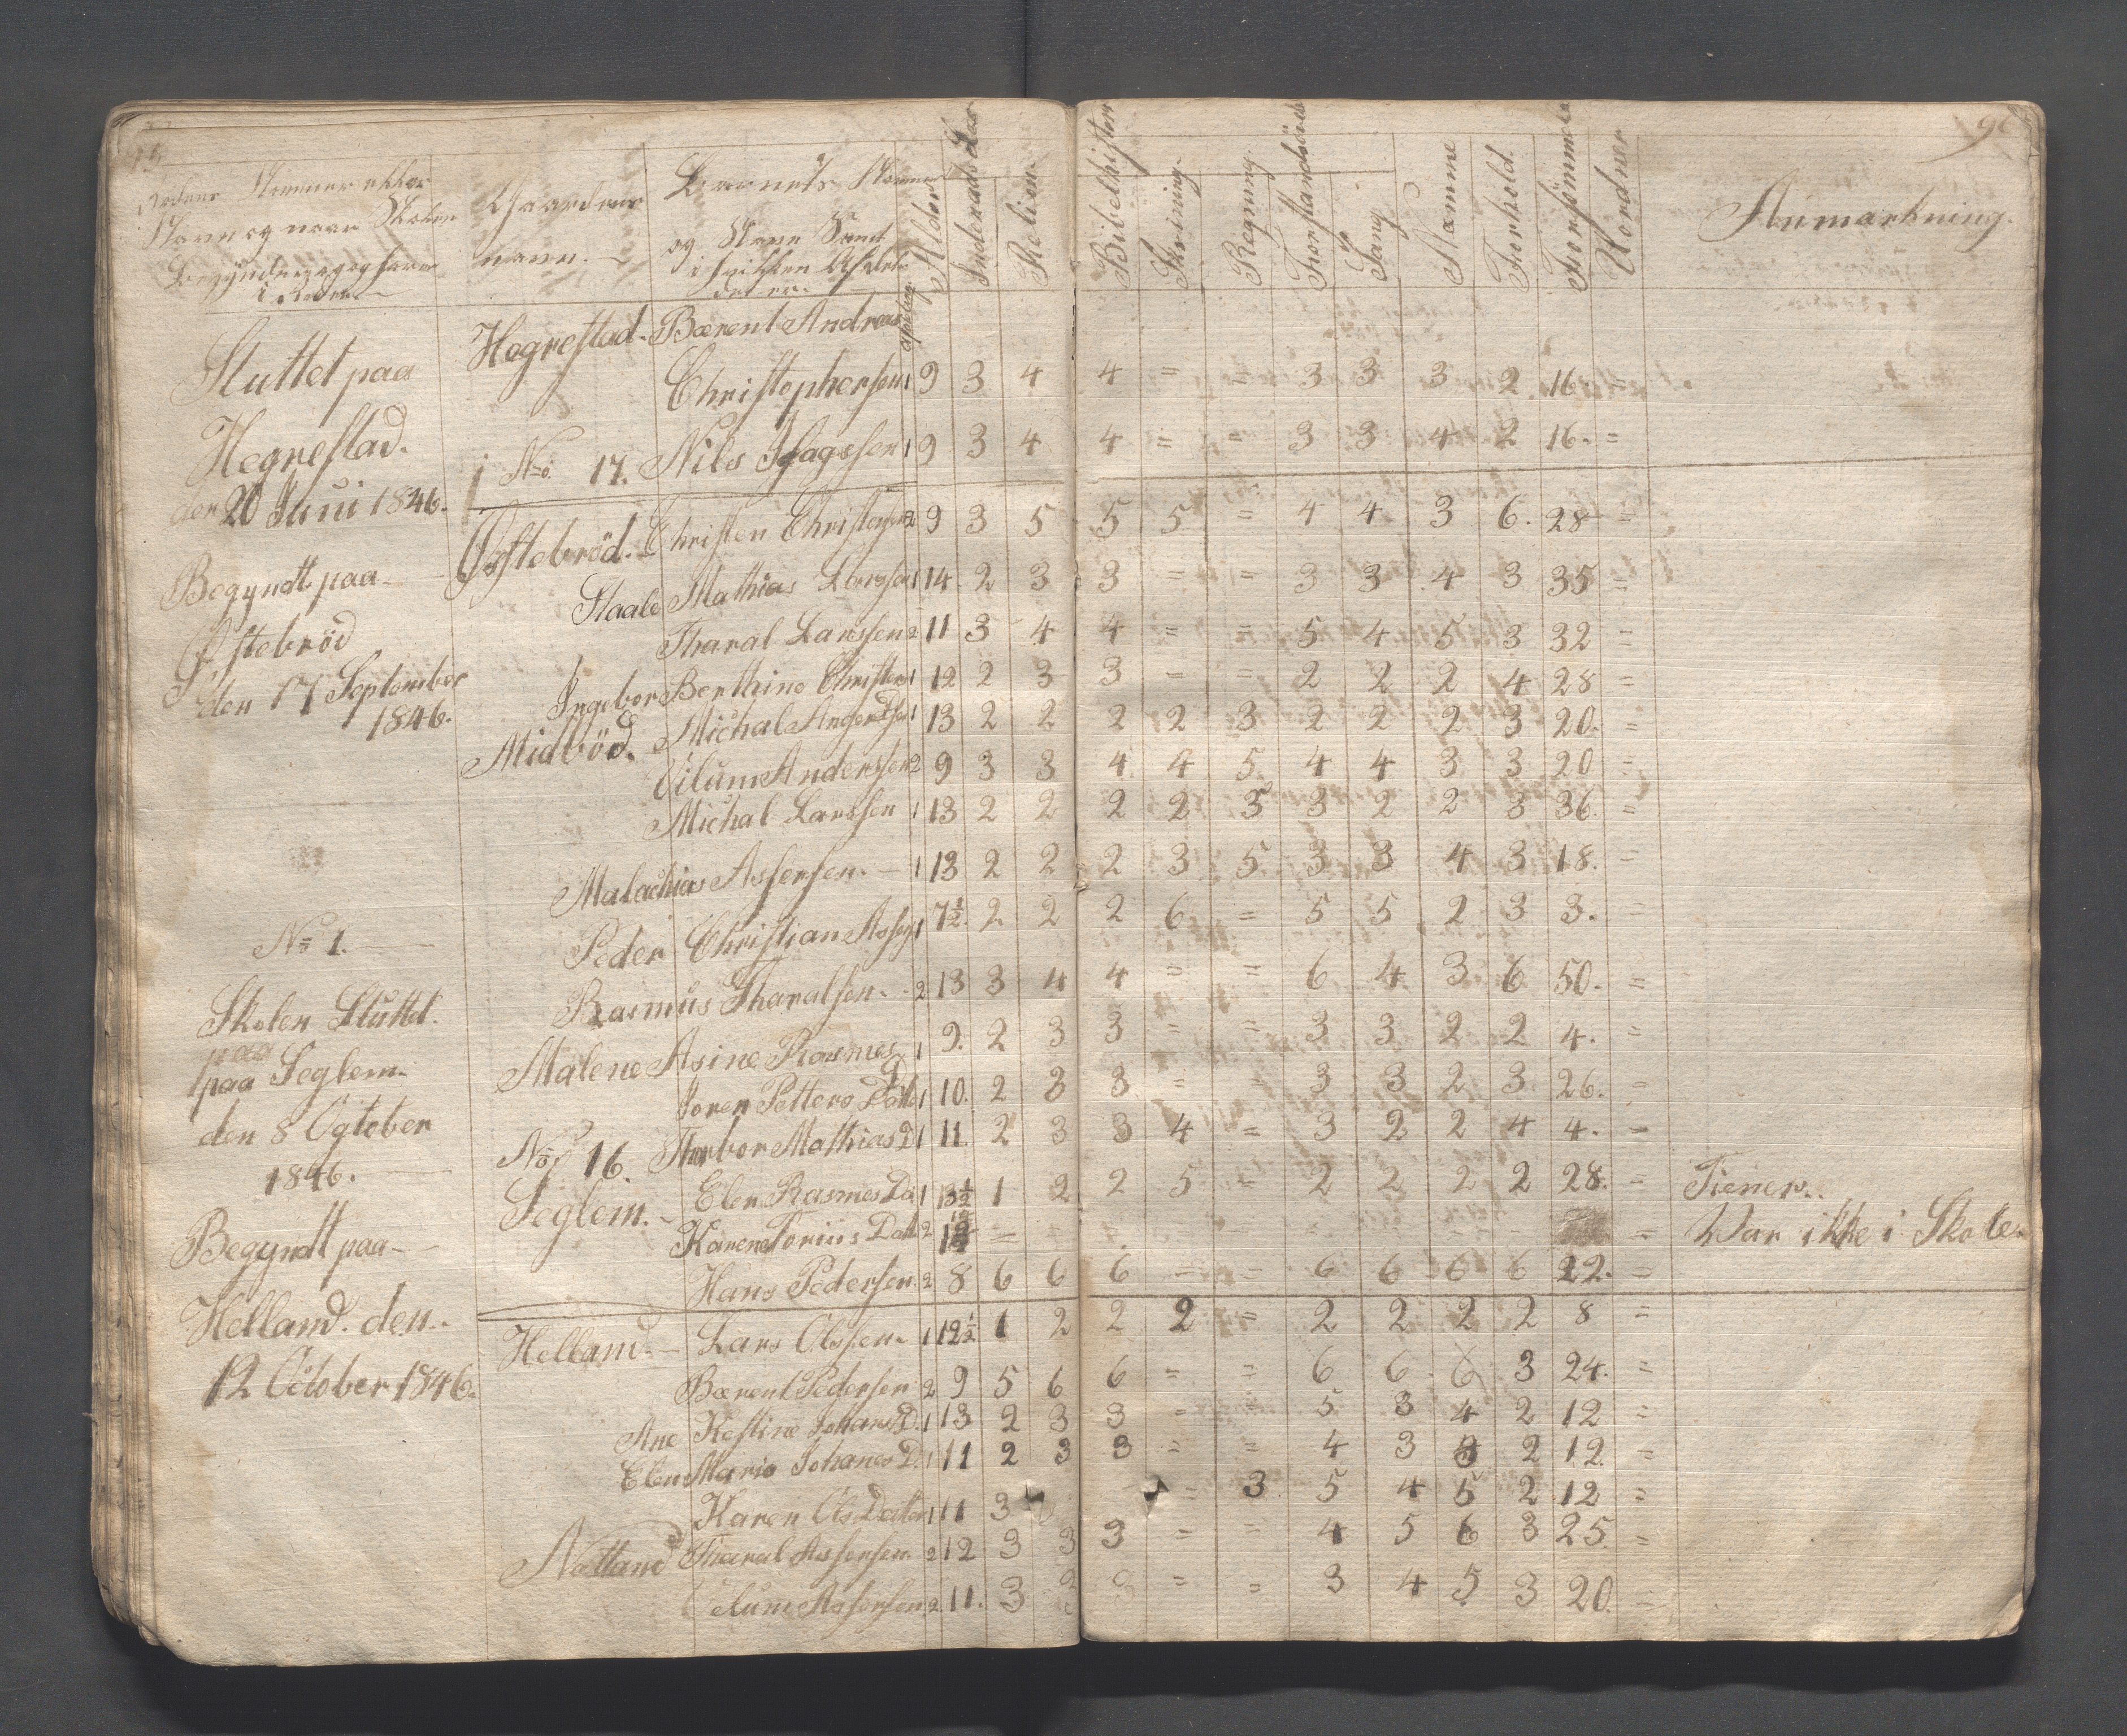 Gaardens
navn.
Barnets Navne
og Stavn Samt
Alder
Inderands Lær
Relion.
Bibelhistori
Skrivning.
Regning.
Forstandsövelse
Sang
Næmme
Forhold.
Forsömmelse
Uordner
Anmærkning.
Sluttet paa
Hegrestad.
den 20 Juni 1846.
Begyndt paa
Östebröd
den 17 September
1846.
No 1.
Skolen Sluttet.
paa
paa Seglem.
den 8 Ogtober
1846.
Begyndt paa
Helland. den
12 October 1846.
Hegrestad. Bærent Andreas
Christophersen 1 9 3 4 4 = = 3 3 3 2 16 =
No. 17. Nils 1 9 3 4 4 = = 3 3 4 2 16. =
Östebröd. Christen Christensen 2 9 3 5 5 5 = 4 4 3 6. 28 =
Staale Mathias Larssen 1 14 2 3 3 = = 3 3 4 3 35 =
Tharal Larssen 2 11 3 4 4 = = 5 4 5 3 32 =
Ingebor Berthine Christens 1 12 2 3 3 = = 2 2 2 4 28 =
Midböd. Michal 1 13 2 2 2 2 3 2 2 2 3 20. =
Vilum Anderssen 2 9 3 3 4 4 5 4 4 3 3 20 =
Michal Larssen 1 13 2 2 2 2 3 3 2 2 3 36. =
Malachias Assersen. 1 13 2 2 2 3 5 3 3 4 3 18. =
Peder Christian 1 7½. 2 2 2 6 = 5 5 2 3 3. =
Rasmus Tharalsen. 2 13 3 4 4 = = 6 4 3 6 50. =
Malene Asine Rasmes 1 9. 2 3 3 = = 3 3 2 2 4. =
Joren Petters Datter 1 10. 2 3 3 = = 3 3 2 3. 26. =
No 16. Thorbor Mathias D 1 11. 2 3 3 4 = 3 2 2 4 4. =
Seglem. Elen Rasmes Da 1 13½ 1 2 2 5 = 2 2 2 2 28. = Tiener.
Karene Datt 2 = Var ikke i Skole.
Hans Pedersen. 2 8 6 6 6 = = 6 6 6 6 22. =
Helland. Lars Olssen. 1 12½ 1 2 2 2 = 2 2 2 2 8 =
Bærent Pedersen 2 9 5 6 6 = = 6 6 6 3 24. =
Ane Kestine Johans D. 1 13 2 3 3 = = 5 3 4 2 12 =
Elen Maria Johanes D. 1 11 2 3 3 = = 4 3 3 2 12. =
Karen Ols Datter 1 11 3 = 3 5 4 5 2 12 =
Nötland Tharal Assersen. 2 12 3 3 3 = = 4 5 6 3 25. =
Vilum Assersen 2. 11. 3 3 3 = = 3 4 5 3 20. =